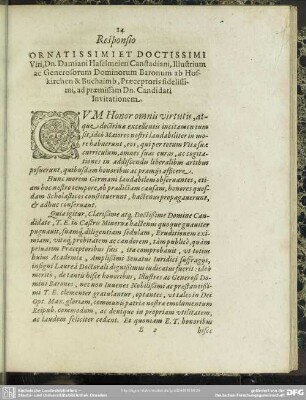 14
Responsio
ORNATISSIMI ET DOCTISSIMI
Viri, Dn. Damiani Haselmeieri Canstadiani, Illustrium
ac Generosorum Dominorum Baronum ab Hof-
kirchen & Buchaimb, Præceptoris fidelissi-
mi, ad præmissam Dn. Candidati
Invitationem.
CVM Honor omnis virtutis, at-
que doctrinæ excellentis incitamentum
sit, ideo Maiores nostri laudabiliter in mo-
re habuerunt, eos, qui per totum Vitæ suæ
curriculum, omnes suas curas, ac cogita-
tiones in addiscendis liberalibus artibus
posuerunt, quibusdam honoribus ac præmijs afficere.
Hunc morem Germani laudabilem observantes, eti-
am hoc nostro tempore, ab practicam causam, honores quos-
dam Scholasticos constituerunt, hactenus propagarunt,
& adhuc conservant.
Quia igitur, Clarissime atque Doctissime Domine Can-
didate, T. E. in Castro Minervæ hactenus quoque gnaviter
pugnavit, suamque diligentiam sedulam, Eruditionem exi-
miam, vitæque probitatem ac candorem, tam publicè, quàm
privatim Præceptoribus suis, ita comprobavit, ut totius
huius Academiæ, Amplissimi Senatus iuridici suffragijs,
insigni Laurea Doctorali dignissimus iudicatus fuerit: ideò
meritò, de tantis hisce honoribus, Illustres ac Generosi Do-
mini Barones, necnon Iuvenes Nobilissimi ac præstantissi-
mi T. E. clementer gratulantur, optantes, ut tales in Dei
Opt. Max. gloriam, communis patriæ nostræ emolumentum
Reipub. commodum, ac denique in propriam utilitatem,
ac laudem feliciter cedant. Et quoniam E. T. honoribus
hisce